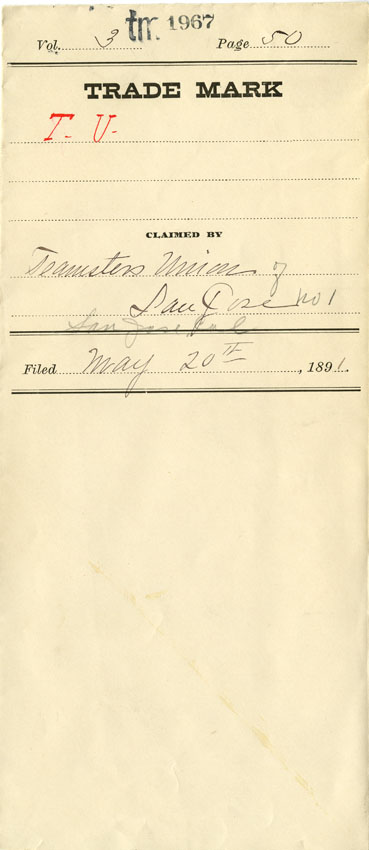 tm 1967
Vol. 3 Page 50
TRADE MARK
T. U.
CLAIMED BY
Teamsters Union of
San Jose No 1
San Jose Cal
Filed May 20th, 1891.